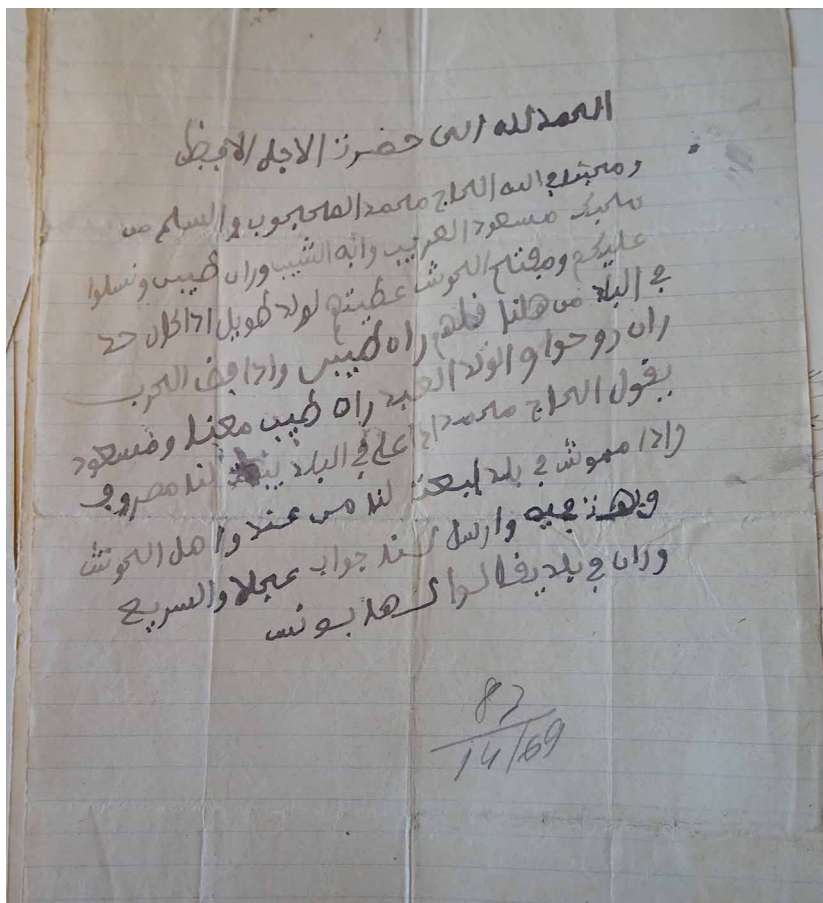 الحمد لله الى حضرت الاجل الافضل
ومحبنا في الله الحاج محمد المحجوب والسلم من
محبك مسعود الغريب وابه الشيب وران طيبين ونسلوا
عليكم ومفتاح الحوش عطيته لولد طويل اذا كان حد
في البلاد من هلنا قلهم راه طيبين واذا فض الحرب
ران روحوا والولد العبد راه طيب معنا ومسعود
يقول الحاج محمد اذا على في البلاد لنا مصروف
واذا مهوش في بلد ابعت لنا من عند واهل الحوش
وارسل لنا جواب عجلا والسريع
وران في بلد يقالوا لها بونس
82
14/69